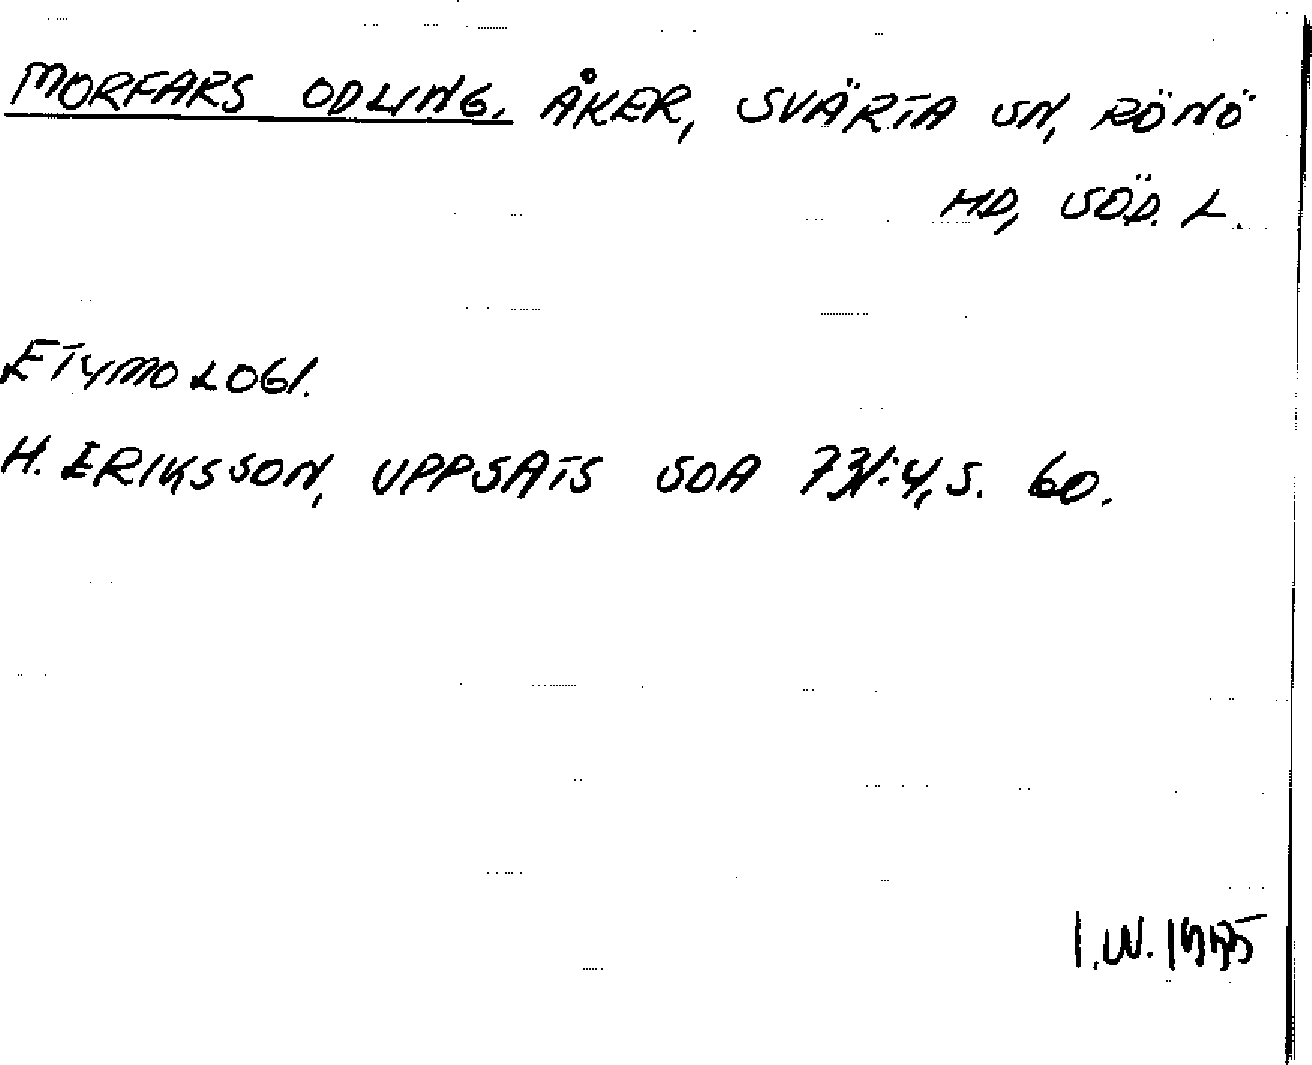 MORFARS ODLING. ÅKER, SVÄRTA SN, RÖNÖ
HD, SÖD. L.
ETYMOLOGI.
H. ERIKSSON, UPPSATS SOA 73/:4, S. 60.
I.W. 1975